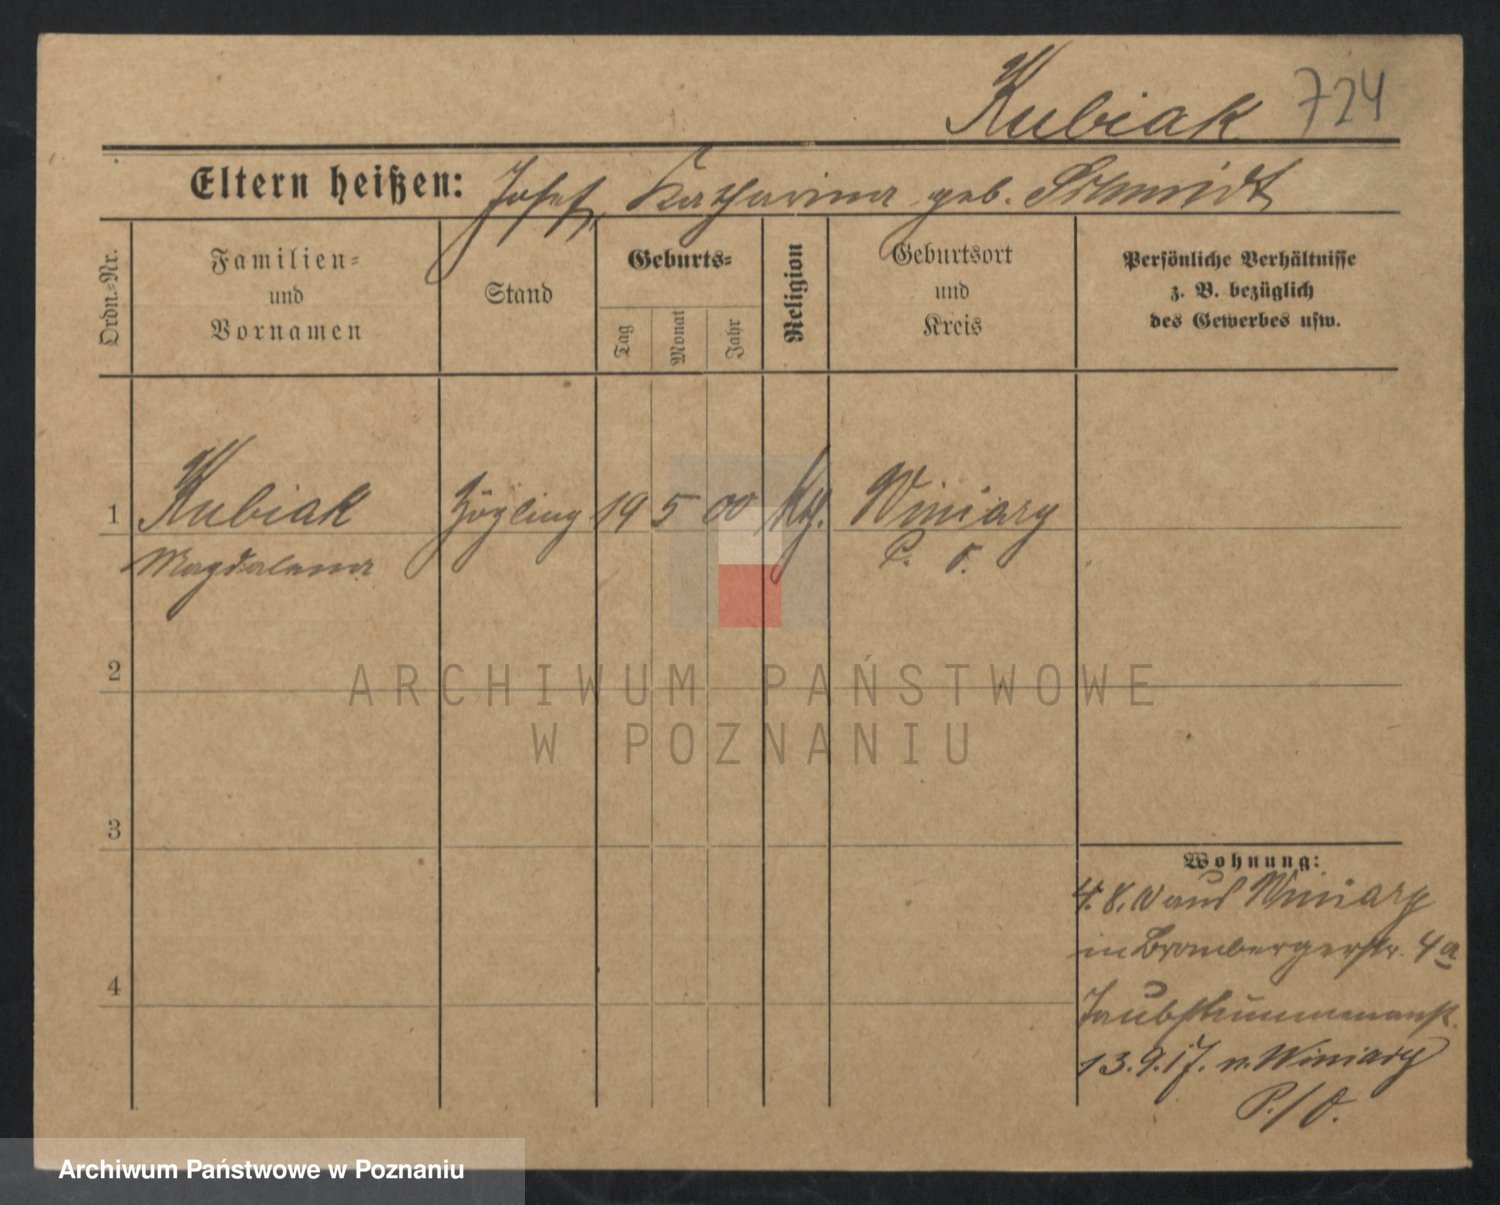 Kubiak 724
Eltern heißen: Josef, Katharina geb. Schmidt
Ordn.-Nr.
Familien-
und
Vornamen
Stand
Geburts-
Tag
Monat
Jahr
Religion
Geburtsort
und
Kreis
Persönliche Verhältnisse
z. B. bezüglich
des Gewerbes usw.
1 Kubiak Zögling 19 5 00 kth. Winiary
Magdalena P. O.
2
3
4
Wohnung:
4. 8. aus Winiary
in Brombergerstr. 4a
Taubstummenanst.
13.9.17. n. Winiary
P./O.
ARCHIWUM PAŃSTWOWE
W POZNANIU
Archiwum Państwowe w Poznaniu